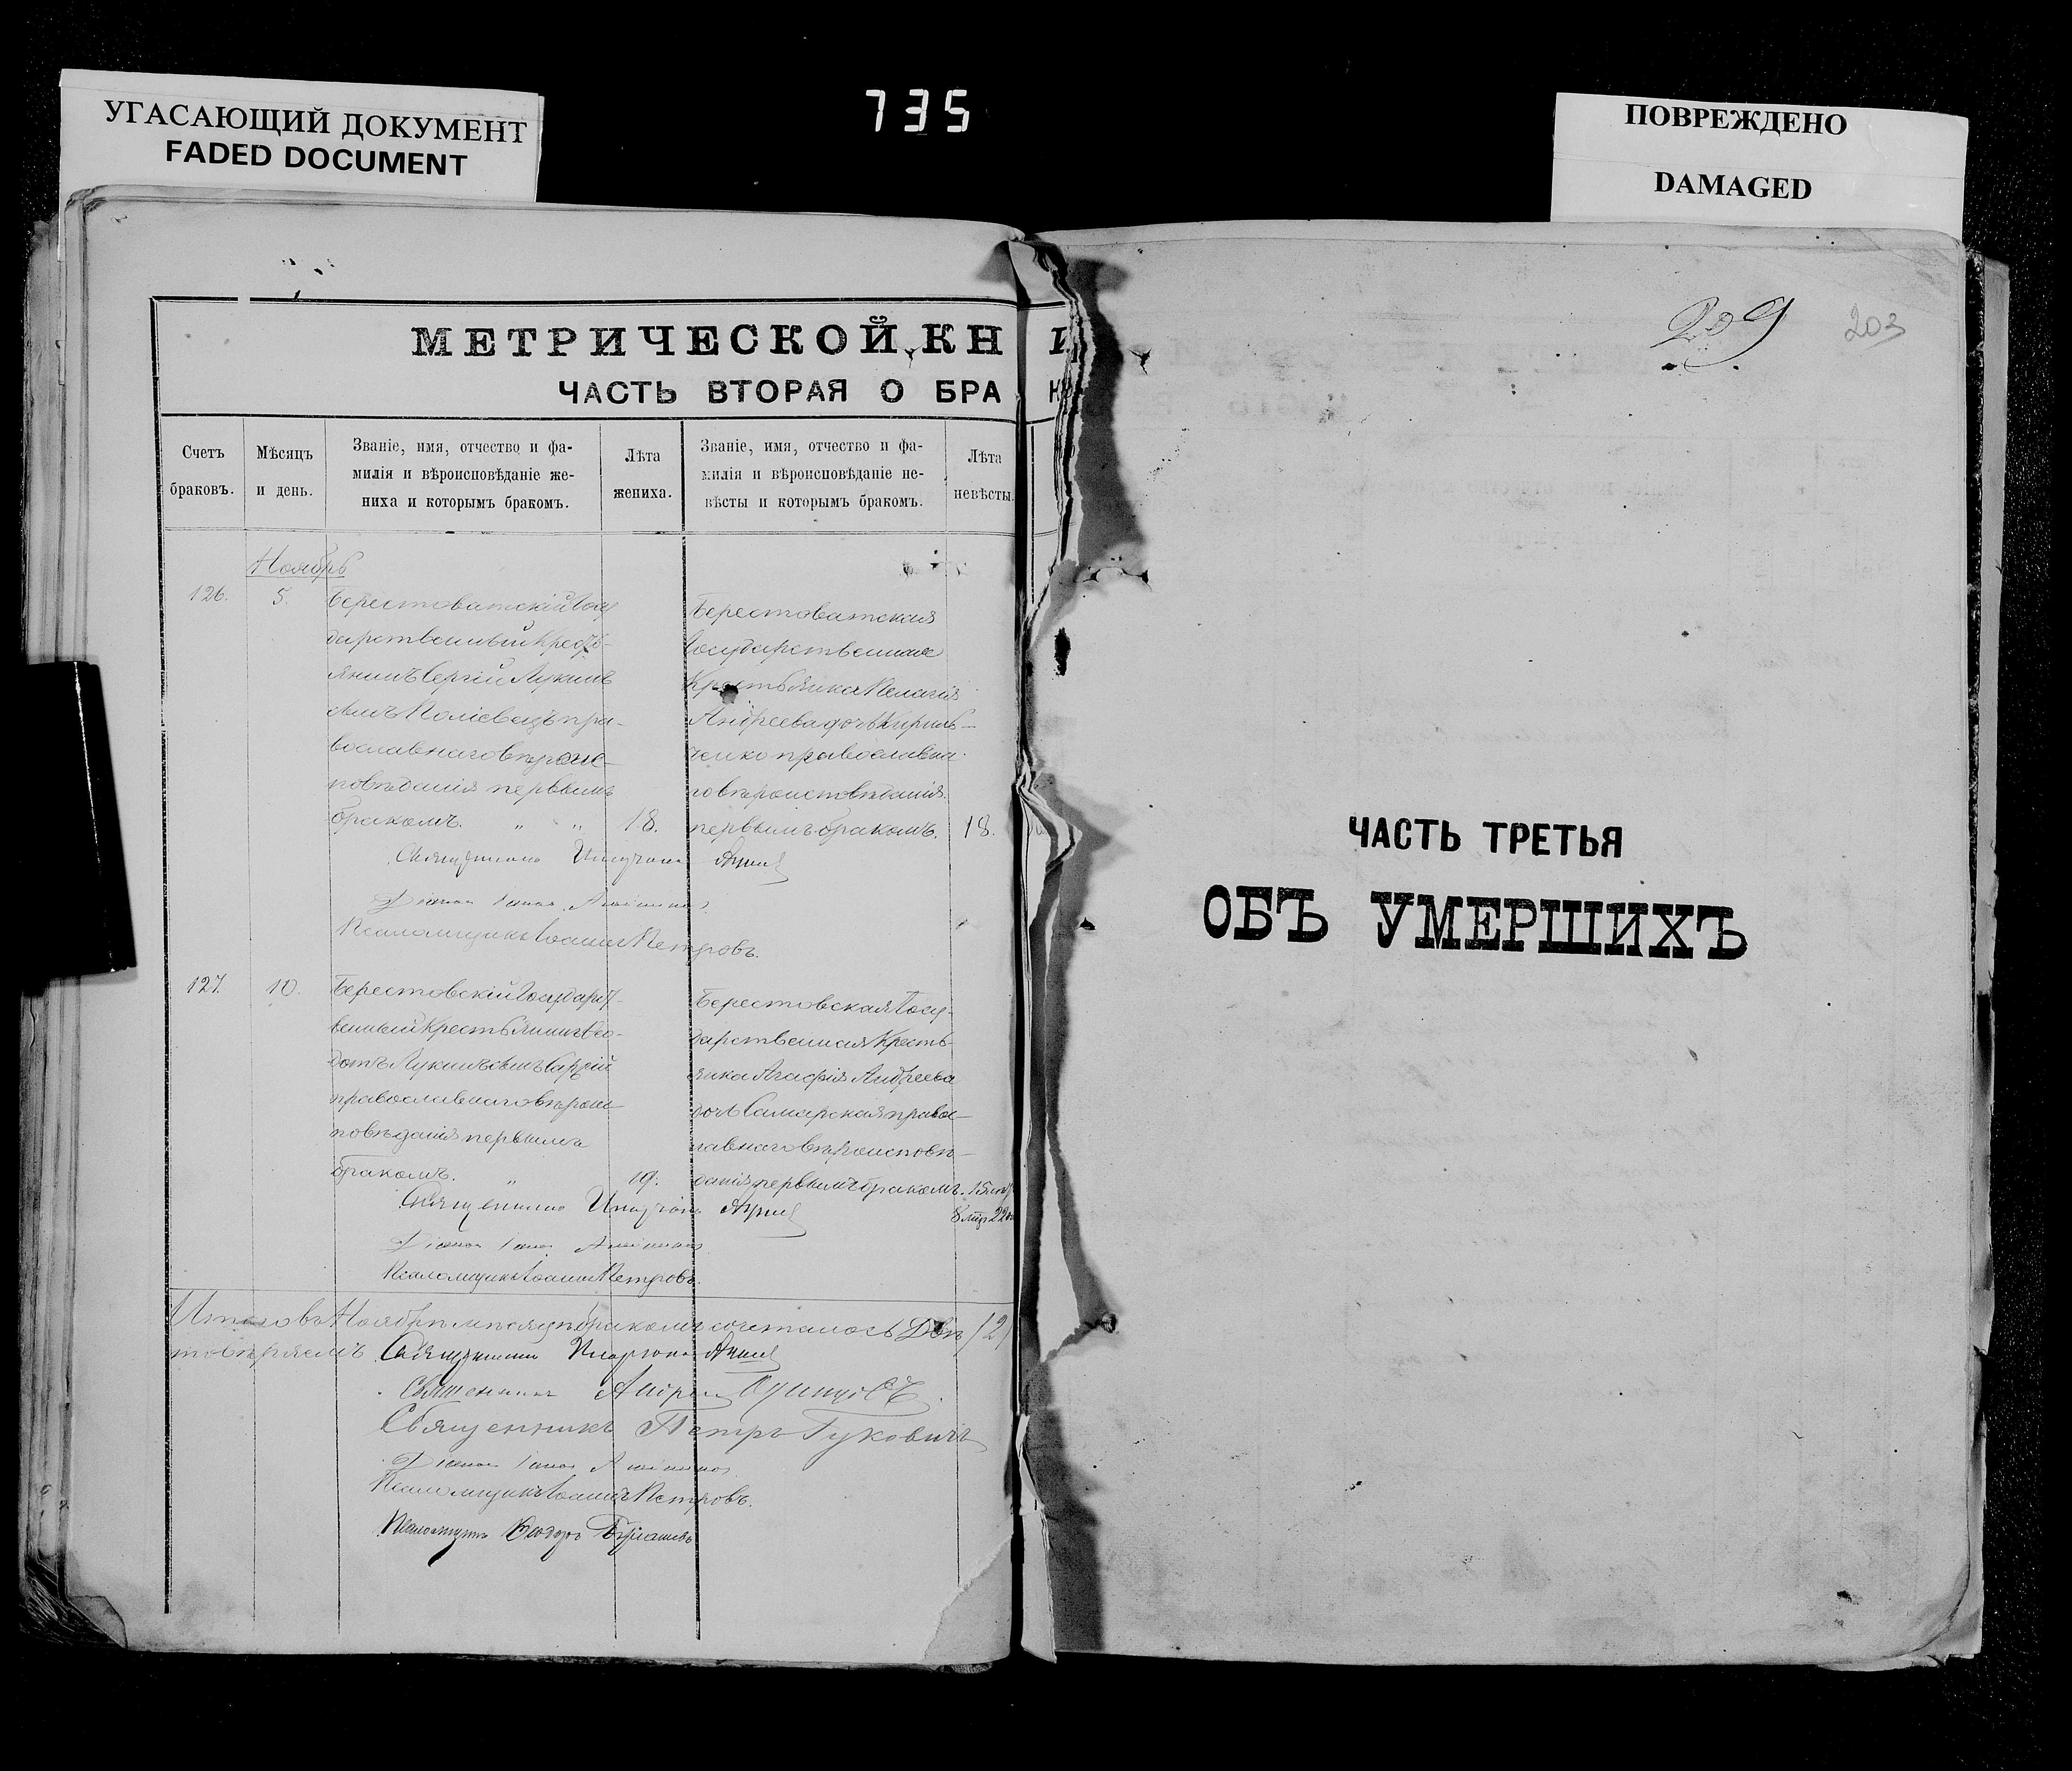 УГАСАЮЩИЙ ДОКУМЕНТ
FADED DOCUMENT
735
ПОВРЕЖДЕНО
DAMAGED
МЕТРИЧЕСКОЙ КН И
ЧАСТЬ ВТОРАЯ О БРА К
Счетъ
браковъ.
Мѣсяцъ
и день.
Званіе, имя, отчество и фа-
милія и вѣроисповѣданіе же-
ниха и которымъ бракомъ.
Лѣта
жениха.
Званіе, имя, отчество и фа-
милія и вѣроисповѣданіе не-
вѣсты и которымъ бракомъ.
Лѣта
невѣсты.
Ноябрь
126.
5.
Берестоватскій Госу
дарственный Кресть-
янинъ Сергій Лукинъ
сынъ Поліевецъ пра-
вославнаго вѣроис-
повѣданія первымъ
бракомъ. " "
18.
Берестоватская
Государственная
Крестьянка Пелагія
Андреева дочь Кириль-
ченко православна
го вѣроисповѣданія
первымъ бракомъ.
18.
Священникъ
Діаконъ Іоаннъ
Псаломщикъ Іоаннъ Петровъ.
127.
10.
Берестовскій Государст-
венный Крестьянинъ Ѳео-
дотъ Лукинъ сынъ
православнаго вѣроис-
повѣданія первымъ
бракомъ. "
19.
Берестовская Госу-
дарственная Кресть-
янка Агафія Андреева
дочь Самарская правос-
лавнаго вѣроисповѣ-
данія первымъ бракомъ.
15 лѣт
8 мѣс 22 дн
Священникъ
Діаконъ Іоаннъ
Псаломщикъ Іоаннъ Петровъ.
Итого въ Ноябрѣ мѣсяцѣ бракомъ сочеталось Двѣ /2/
что вѣряемъ Священникъ
Священникъ Андрей
Священникъ Петръ Гуковичъ
Діаконъ Іоаннъ
Псаломщикъ Іоаннъ Петровъ.
Псаломщикъ Ѳеодоръ
209
203
ЧАСТЬ ТРЕТЬЯ
ОБЪ УМЕРШИХЪ